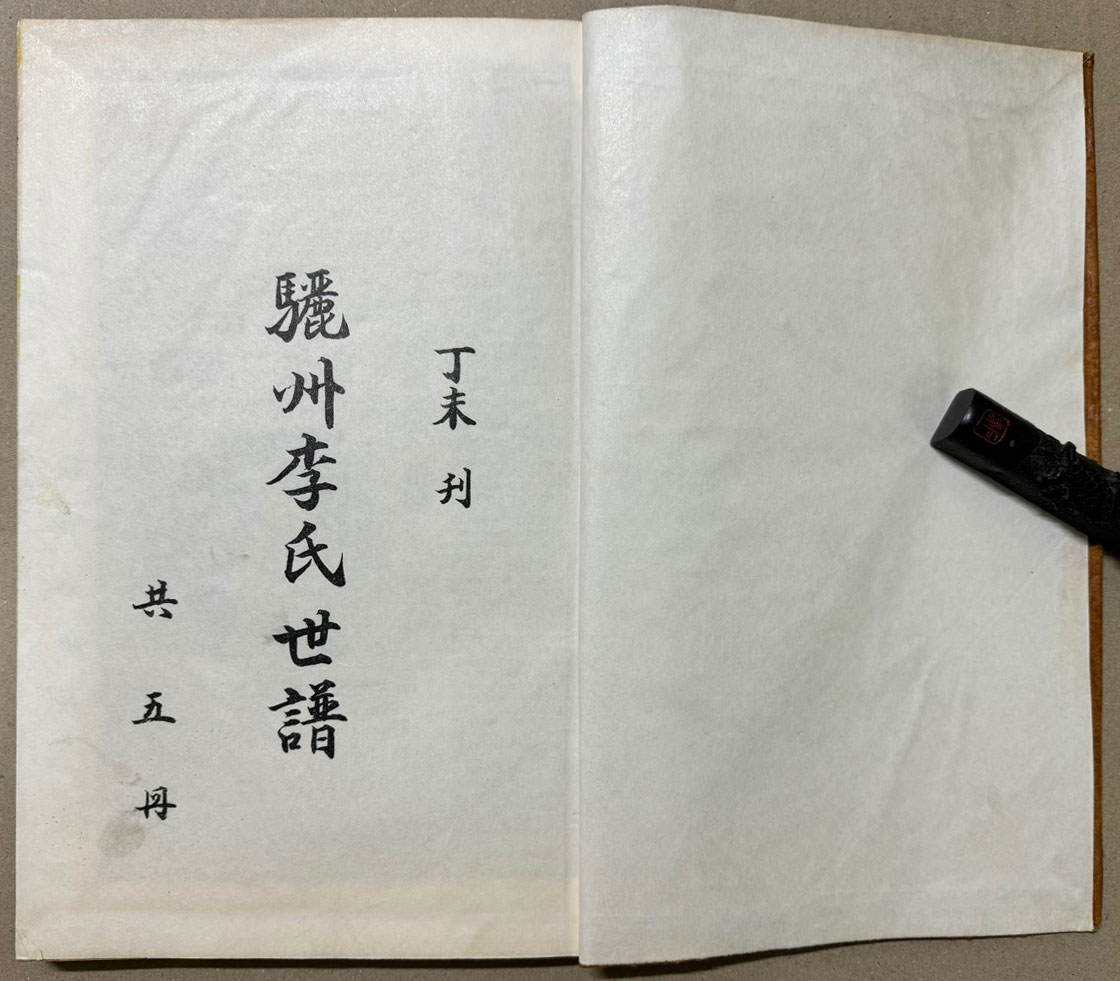 丁未 刊
驪州李氏世譜
共五冊